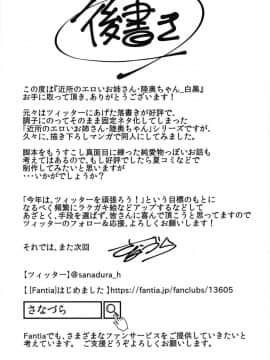 後書き
この度は『近所のエロいお姉さん・陸奥ちゃん_白黒』
お手に取って頂き、ありがとうございます！
元々はツィッターにあげた落書きが好評で、
調子にのってそのまま固定ネタ化してしまった
「近所のエロいお姉さん・陸奥ちゃん」シリーズですが、
久々に、描き下ろしマンガで同人にしてみました。
脚本をもうすこし真面目に練った純愛物っぽいお話も
考えてはあるので、もし好評でしたら夏コミなどで
制作してみたいと思いますが
・・・いかがでしょうか？
「今年は、ツィッターを頑張ろう！」という目標のもとに
なるべく頻繁にラクガキ絵などアップするなどして
あざとく、手段を選ばず、皆さんに喜んで頂こうと思ってますので
ツィッターのフォロー＆応援、よろしくお願いします！
それでは、また次回
さなづら
【ツィッター】@sanadura_h
【 [Fantia]はじめました 】https://fantia.jp/fanclubs/13605
さなづら
Fantiaでも、さまざまなファンサービスをご提供していきたいと
考えています。 ご支援どうぞよろしくお願いします！